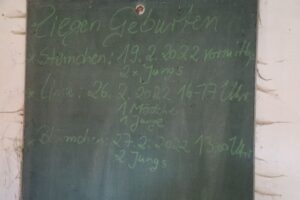 Ziegen Geburten
* Sternchen: 19.2.2022 vormittg
2x Jungs
* Una: 26.2.2022 14-17 Uhr
1 Mädchen
1 Junge
* Blümchen: 27.2.2022 13:00 Uhr
2 Jungs